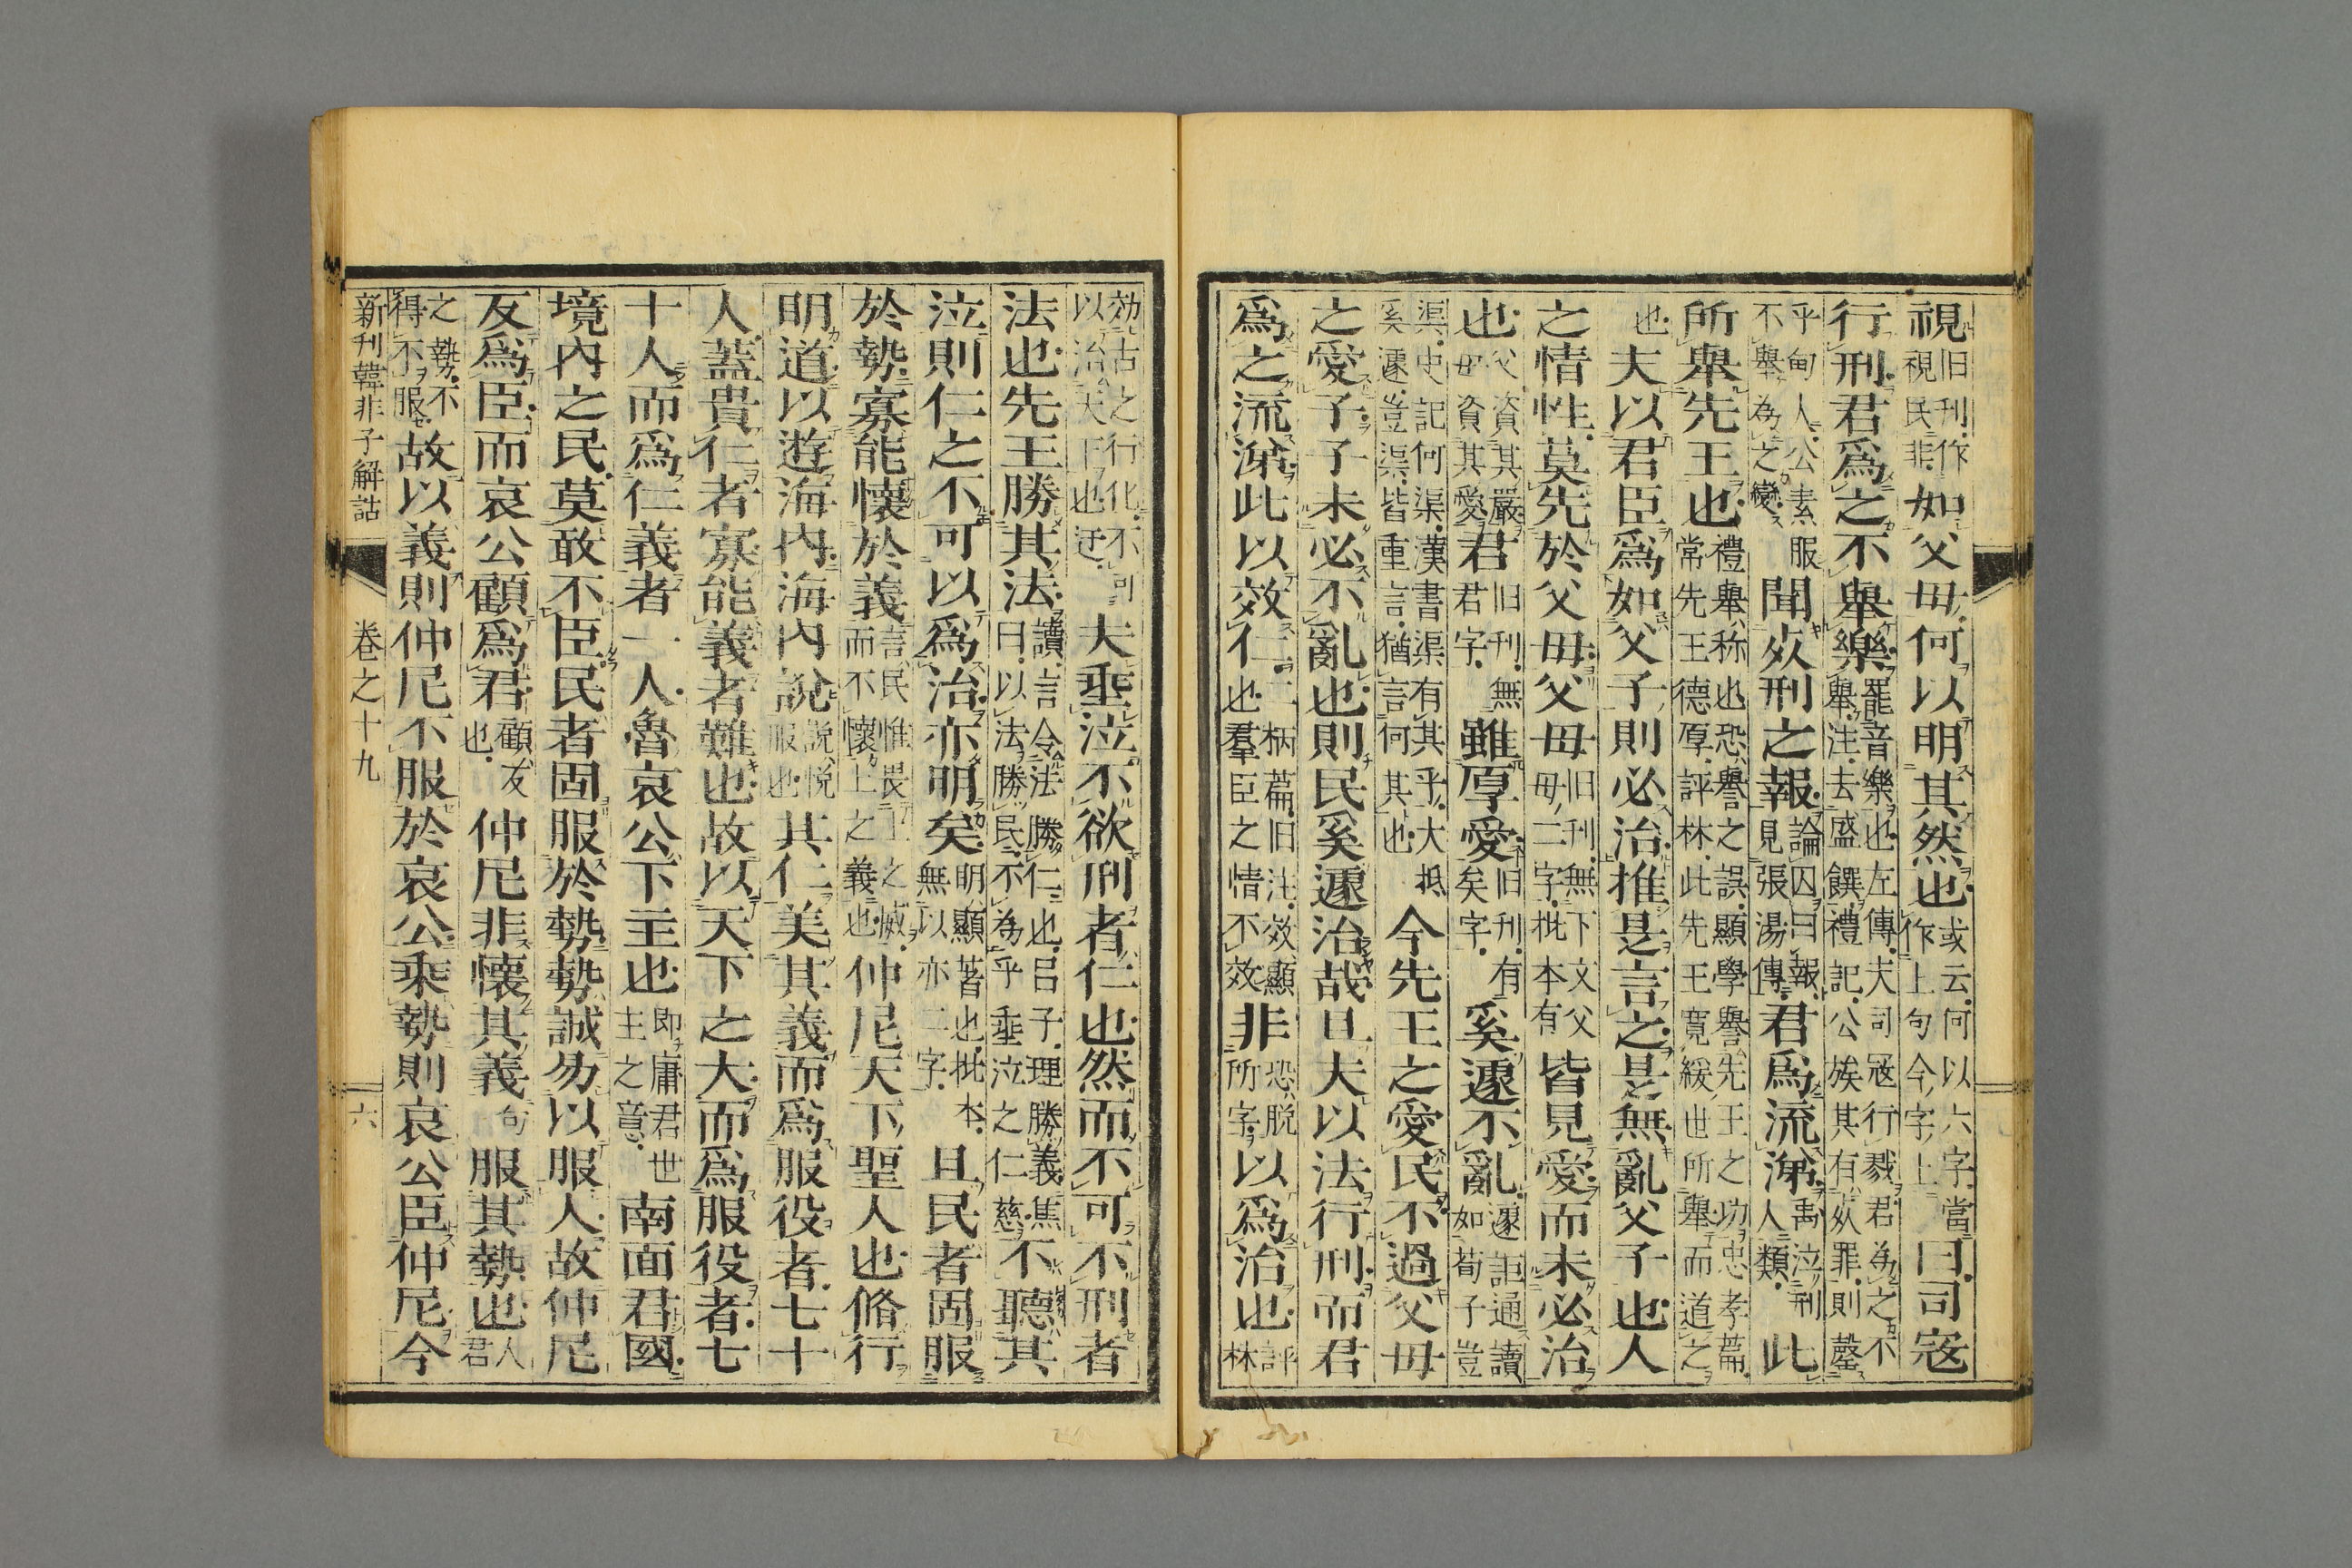 視旧刊作視民非如父毋何以明其然也或云何以六字當作上句今字上曰司寇
行刑君爲之不舉樂罷音樂也左傳夫司冦行戮君為之不舉注去盛饌禮記公族其有死罪則罄
乎甸人公素服不舉為之變聞死刑之報論囚曰報見張湯傳君爲流涕禹泣刑人類此
所舉先王也禮舉称也恐譽之誤顯學譽先王之功忠孝篇常先王德厚評林此先王寬緩世所舉而道之
也夫以君臣爲如父子則必治推是言之是無亂父子也人
之情性莫先於父毋父毋旧刊無下文父毋二字批本有皆見愛而未必治
也父資其嚴毋資其愛君旧刊無君字雖厚愛旧刊有矣字奚遽不亂遽詎通讀如荀子豈
渠史記何渠漢書渠有其乎大抵奚遽豈渠皆重言猶言何其也今先王之愛民不過父毋
之愛子子未必不亂也則民奚遽治哉且夫以法行刑而君
爲之流涕此以效仁二柄篇旧注效顯也羣臣之情不效非恐脱所字以爲治也評林
効古之行化不可以治天下也迂夫垂泣不欲刑者仁也然而不可不刑者
法也先王勝其法讀言令法勝仁也呂子理勝義焦曰以法勝民不為乎垂泣之仁慈不聽其
泣則仁之不可以爲治亦明矣明顯著也批本無以亦二字且民者固服
於勢寡能懷於義言民惟畏上之威而不懷上之義也仲尼天下聖人也脩行
明道以遊海內海內說說悅服也其仁美其義而爲服役者七十
人蓋貴仁者寡能義者難也故以天下之大而爲服役者七
十人而爲仁義者一人魯哀公下主也即庸君世主之意南面君國
境內之民莫敢不臣民者固服於勢勢誠易以服人故仲尼
反爲臣而哀公顧爲君顧反也仲尼非懷其義句服其勢也人君
之勢不得不服故以義則仲尼不服於哀公乘勢則哀公臣仲尼今
新刊韓非子解詁 卷之十九 六